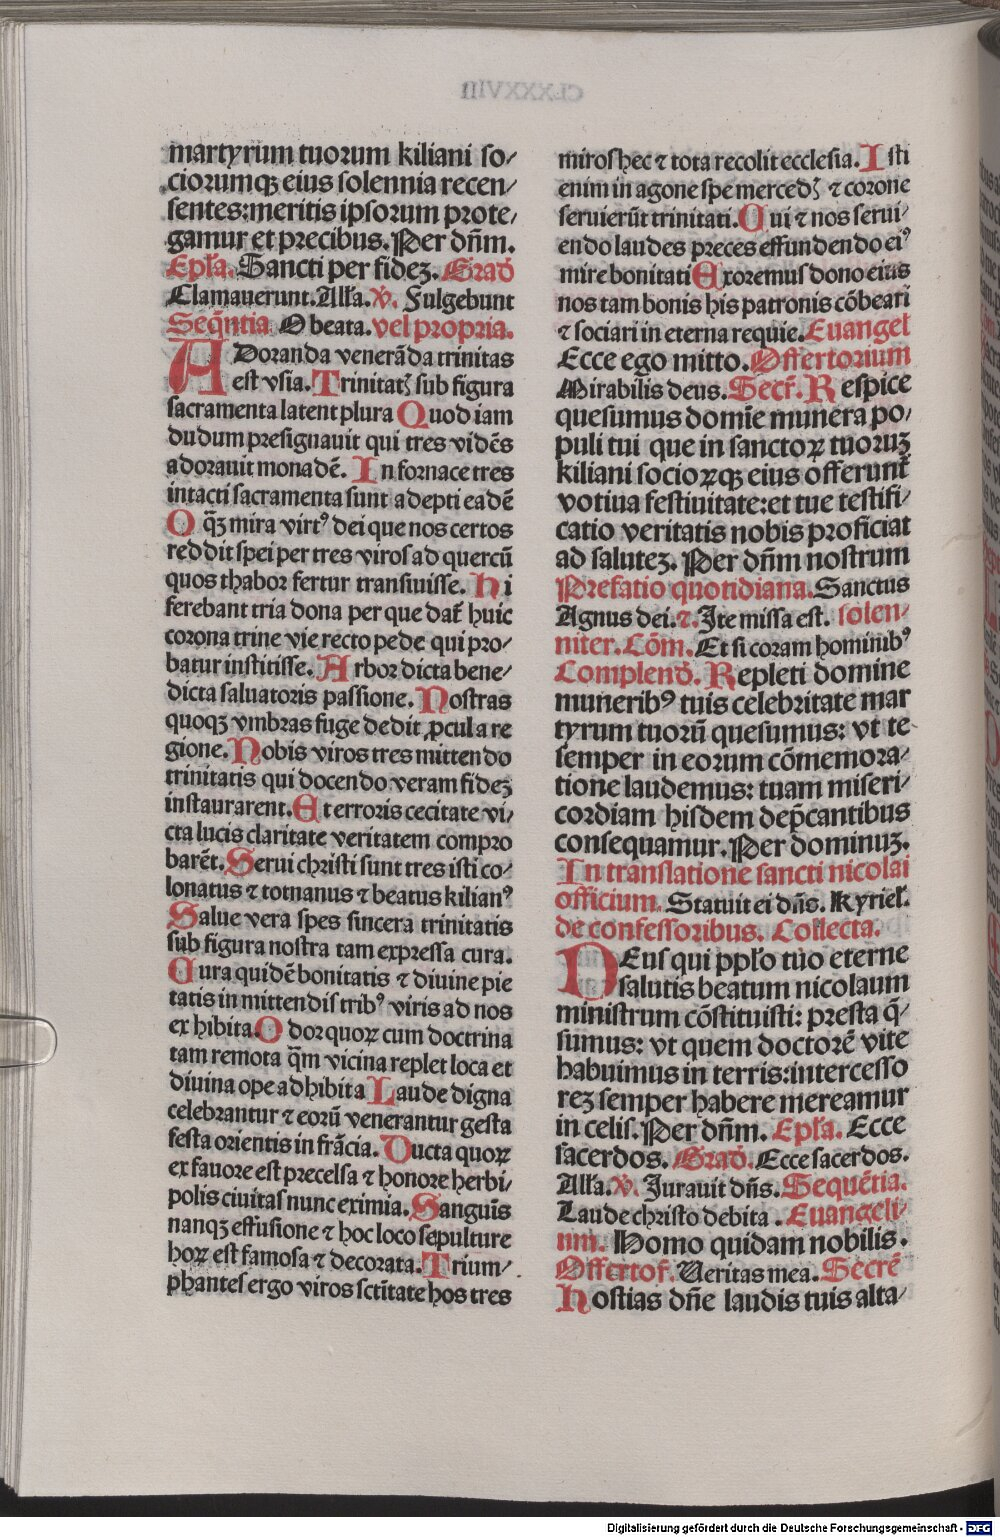 martyrum tuorum kiliani so/
ciorumqꝫ eius solennia recen/
sentes:meritis ipsorum prote/
gamur et precibus. Per dn̄m.
Epl̄a. Sancti per fidez. Grad̄
Clamauerunt. All̄a. ℣. Fulgebunt
Seq̄ntia O beata. vel propria.
ADoranda venerāda trinitas
est vsia. Trinitatꝭ sub figura
sacramenta latent plura Quod iam
dudum presignauit qui tres vidēs
adorauit monadē. In fornace tres
intacti sacramenta sunt adepti eadē
O qꝫ mira virtꝰ dei que nos certos
reddit spei per tres viros ad quercū
quos thabor fertur transiuisse. Hi
ferebant tria dona per que dat̄ huic
corona trine vie recto pede qui pro/
batur institisse. Arbor dicta bene/
dicta saluatoris passione. Nostras
quoqꝫ vmbras fuge dedit ꝓcul a re
gione. Nobis viros tres mittendo
trinitatis qui docendo veram fidez
instaurarent. Et erroris cecitate vi/
cta lucis claritate veritatem compro
barēt. Serui christi sunt tres isti co/
lonatus ⁊ totnanus ⁊ beatus kilianꝰ
Salue vera spes sincera trinitatis
sub figura nostra tam expressa cura.
Cura quidē bonitatis ⁊ diuine pie
tatis in mittendis tribꝰ viris ad nos
exhibita. Odor quoꝝ cum doctrina
tam remota q̄m vicina replet loca et
diuina ope adhibita Laude digna
celebrantur ⁊ eorū venerantur gesta
festa orientis in frācia. Ducta quoꝝ
ex fauore est precelsa ⁊ honore herbi/
polis ciuitas nunc eximia. Sanguīs
nanqꝫ effusione ⁊ hoc loco sepulture
hoꝝ est famosa ⁊ decorata. Trium/
phantes ergo viros sctītate hos tres
miros hec ⁊ tota recolit ecclesia. Isti
enim in agone spe mercedꝭ ⁊ corone
seruierūt trinitati. Qui ⁊ nos serui/
endo laudes preces effundendo eiꝰ
mire bonitati Exoremus dono eius
nos tam bonis his patronis cōbeari
⁊ sociari in eterna requie. Euangel
Ecce ego mitto. Offertorium
Mirabilis deus. Secr̄. Respice
quesumus domīe munera po/
puli tui que in sanctoꝝ tuoruz
kiliani socioꝝqꝫ eius offerunt̄
votiua festiuitate:et tue testifi/
catio veritatis nobis proficiat
ad salutez. Per dn̄m nostrum
Prefatio quotidiana. Sanctus
Agnus dei. ⁊. Ite missa est. solen/
niter. Cōm. Et si coram hominibꝰ
Complend̄. Repleti domine
muneribꝰ tuis celebritate mar
tyrum tuorū quesumus: vt te
semper in eorum cōmemora/
tione laudemus: tuam miseri/
cordiam hisdem dep̄cantibus
consequamur. Per dominuz.
In translatione sancti nicolai
officium. Statuit ei dn̄s. Kyriel̄.
de confessoribus. Collecta.
DEus qui pplo tuo eterne
salutis beatum nicolaum
ministrum cōstituisti: presta q̄/
sumus: vt quem doctorē vite
habuimus in terris:intercesso
rez semper habere mereamur
in celis. Per dn̄m. Epl̄a. Ecce
sacerdos. Grad̄. Ecce sacerdos.
All̄a. ℣. Jurauit dn̄s. Sequētia.
Laude christo debita. Euangeli/
um. Homo quidam nobilis.
Offertor̄. Veritas mea. Secrē
Hostias dn̄e laudis tuis alta/
Digitalisierung gefördert durch die Deutsche Forschungsgemeinschaft - DFG